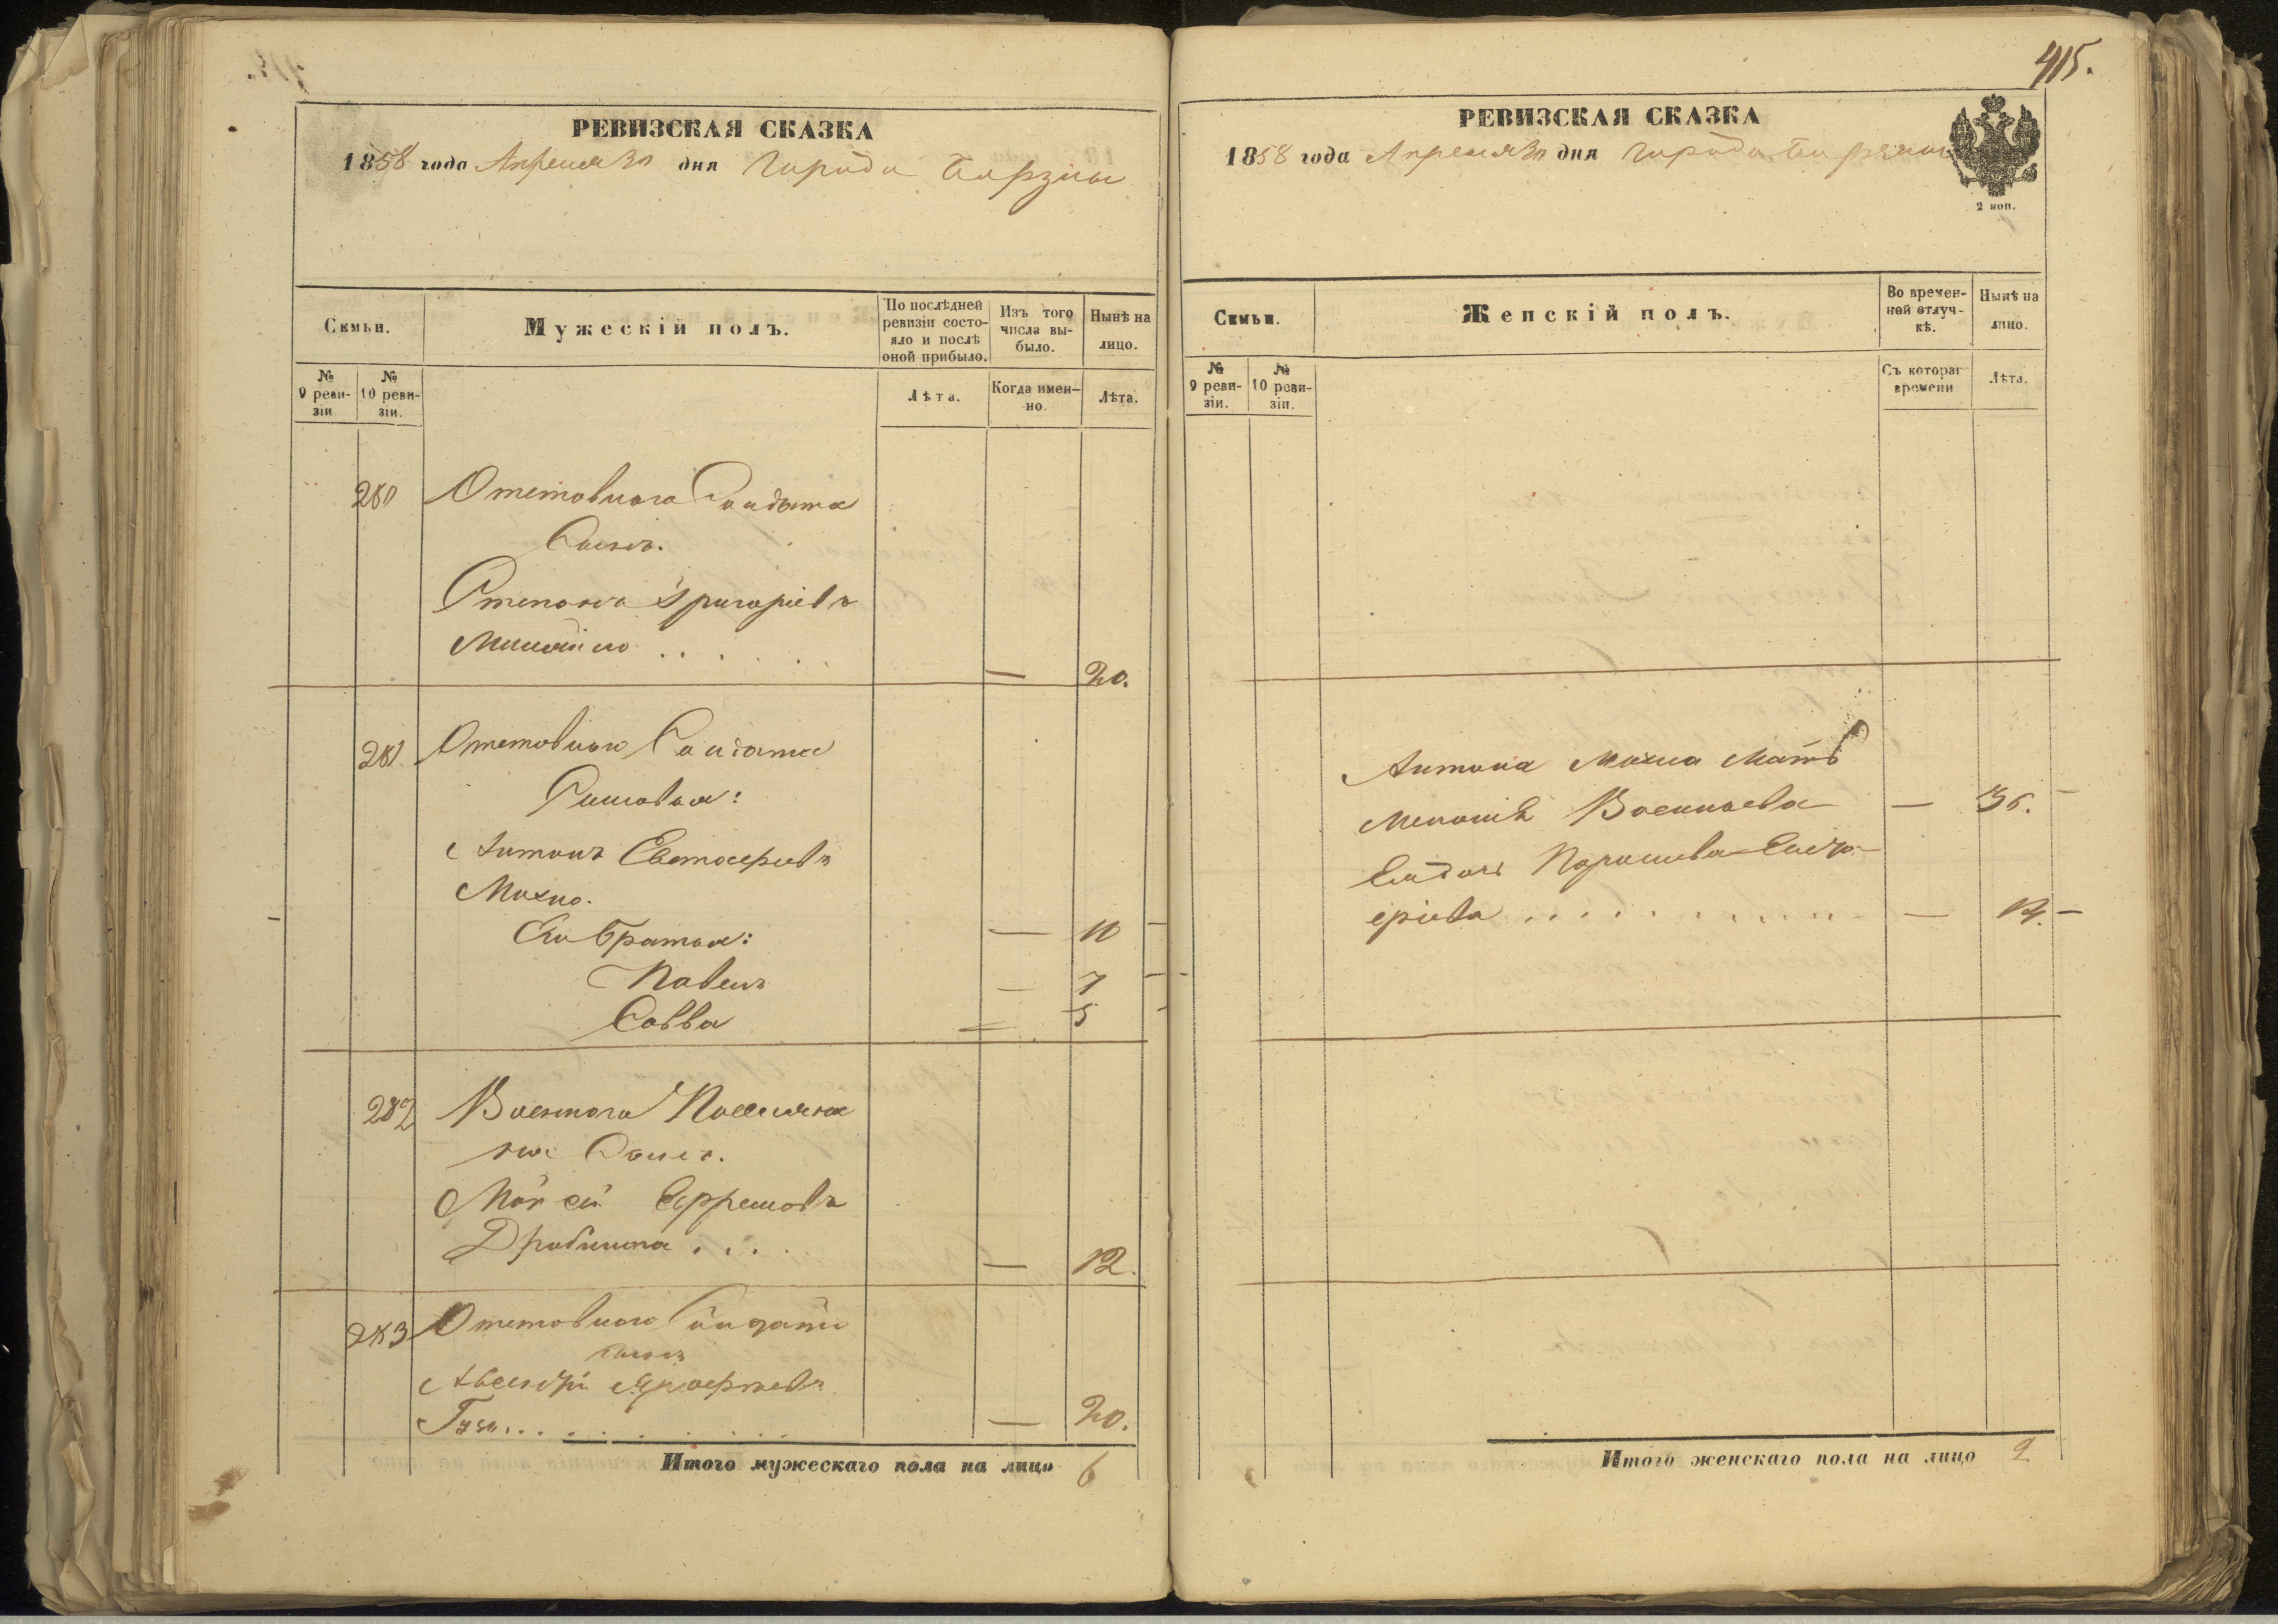 РЕВИЗСКАЯ СКАЗКА
1858 года Апреля 30 дня Города Борзны
Семьи.
Мужескій полъ.
По послѣдней
ревизіи состо-
яло и послѣ
оной прибыло.
Изъ того
числа вы-
было.
Нынѣ на
лицо.
№
9 реви-
зіи
№
10 реви-
зіи.
Лѣта.
Когда имен-
но.
Лѣта.
280 Отставнаго Солдата
Сынъ.
Степанъ Григорьевъ
— 20.
281 Отставнаго Солдата
Сыновья:
Антонъ
Михно.
Его братья: — 10
Павелъ — 7
Савва — 5
282 Военнаго Поселяни
на Сынъ.
Мойсей Ефремовъ
. . . — 12.
283 Отставнаго Солдата
сынъ
Алексѣй
— 20.
Итого мужескаго пола на лицо 6
415.
РЕВИЗСКАЯ СКАЗКА
1858 года Апреля 30 дня Города Борзны
2 коп.
Семьи.
Женскій полъ.
Во времен-
ной отлуч-
кѣ.
Нынѣ на
лицо.
№
9 реви-
зіи.
№
10 реви-
зіи.
Съ котораг
времени
Лѣта.
Антона Михна Мать
— 36.
— 12.
Итого женскаго пола на лицо 2